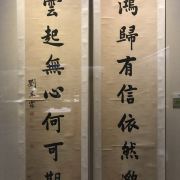 鴻歸有信依然
雲起無心何可期